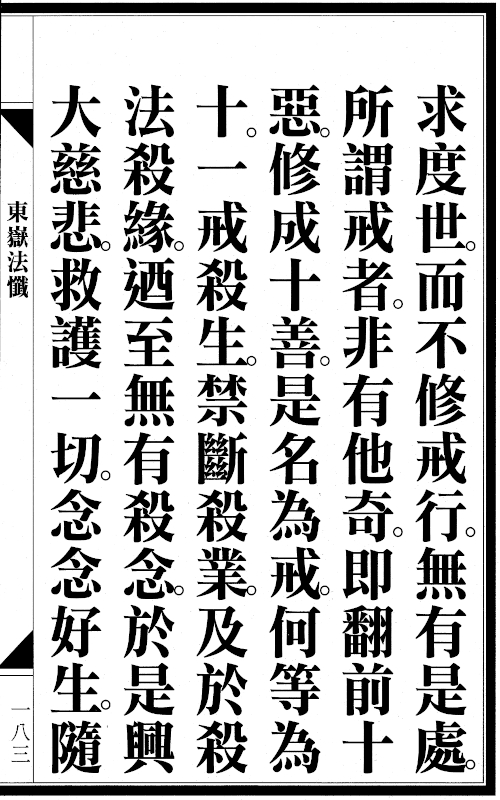 求度世。而不修戒行。無有是處。
所謂戒者。非有他奇。即翻前十
惡。修成十善。是名為戒。何等為
十。一戒殺生。禁斷殺業。及於殺
法殺緣。迺至無有殺念。於是興
大慈悲。救護一切。念念好生。隨
東嶽法懺
一八三